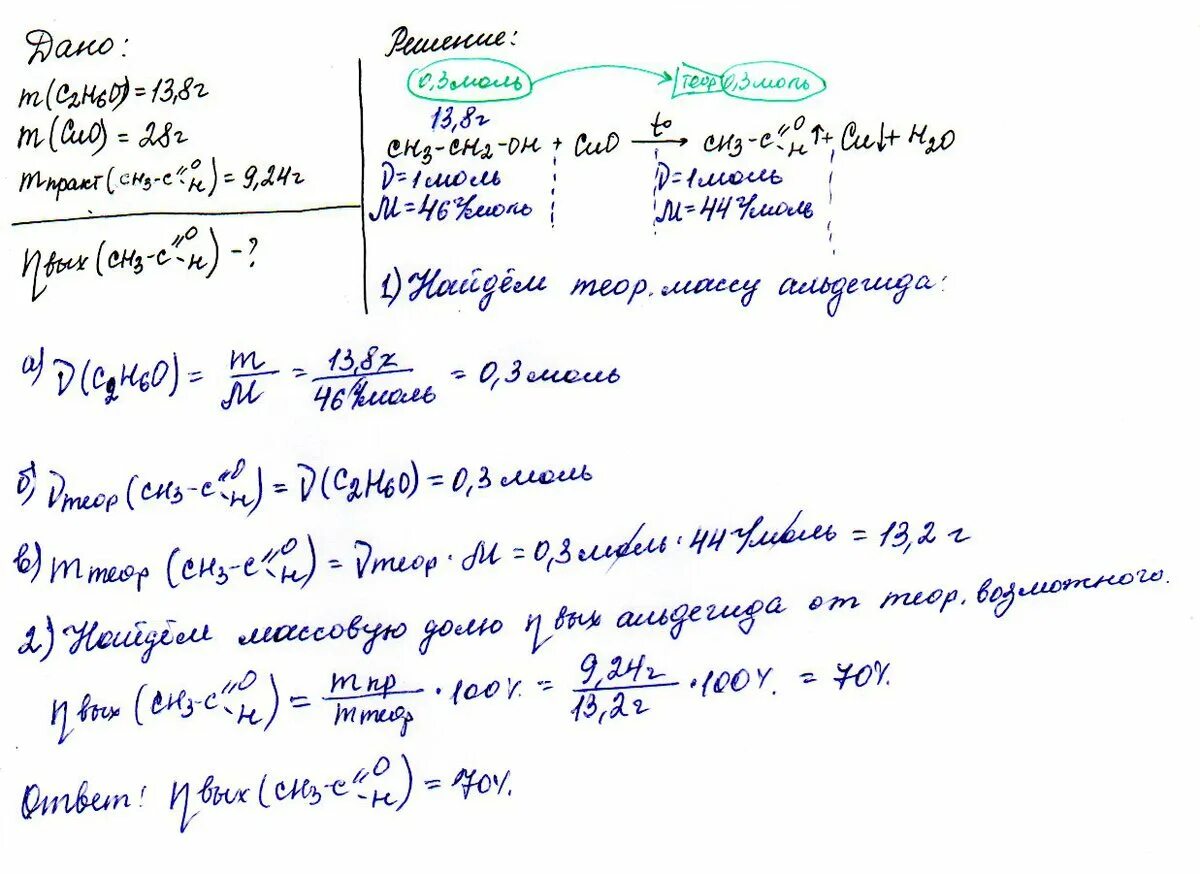 Дано:
m(C2H6O)=13,8г
m(CuO) = 28г
mпракт(CH3-C=O-H) = 9,24г
ηвых(CH3-C=O-H) - ?
Решение:
0,3моль → теор 0,3моль
13,8г
CH3-CH2-OH + CuO t° → CH3-C=O-H↑ + Cu↓ + H2O
ν=1моль ν=1моль
M=46г/моль M=44г/моль
1) Найдём теор. массу альдегида:
а) ν(C2H6O) = m/M = 13,8г/46г/моль = 0,3моль
б) νтеор(CH3-C=O-H) = ν(C2H6O) = 0,3моль
в) mтеор(CH3-C=O-H) = νтеор · M = 0,3моль · 44г/моль = 13,2г
2) Найдём массовую долю ηвых альдегида от теор. возможного.
ηвых(CH3-C=O-H) = mпр/mтеор · 100% = 9,24г/13,2г · 100% = 70%
Ответ: ηвых(CH3-C=O-H) = 70%.